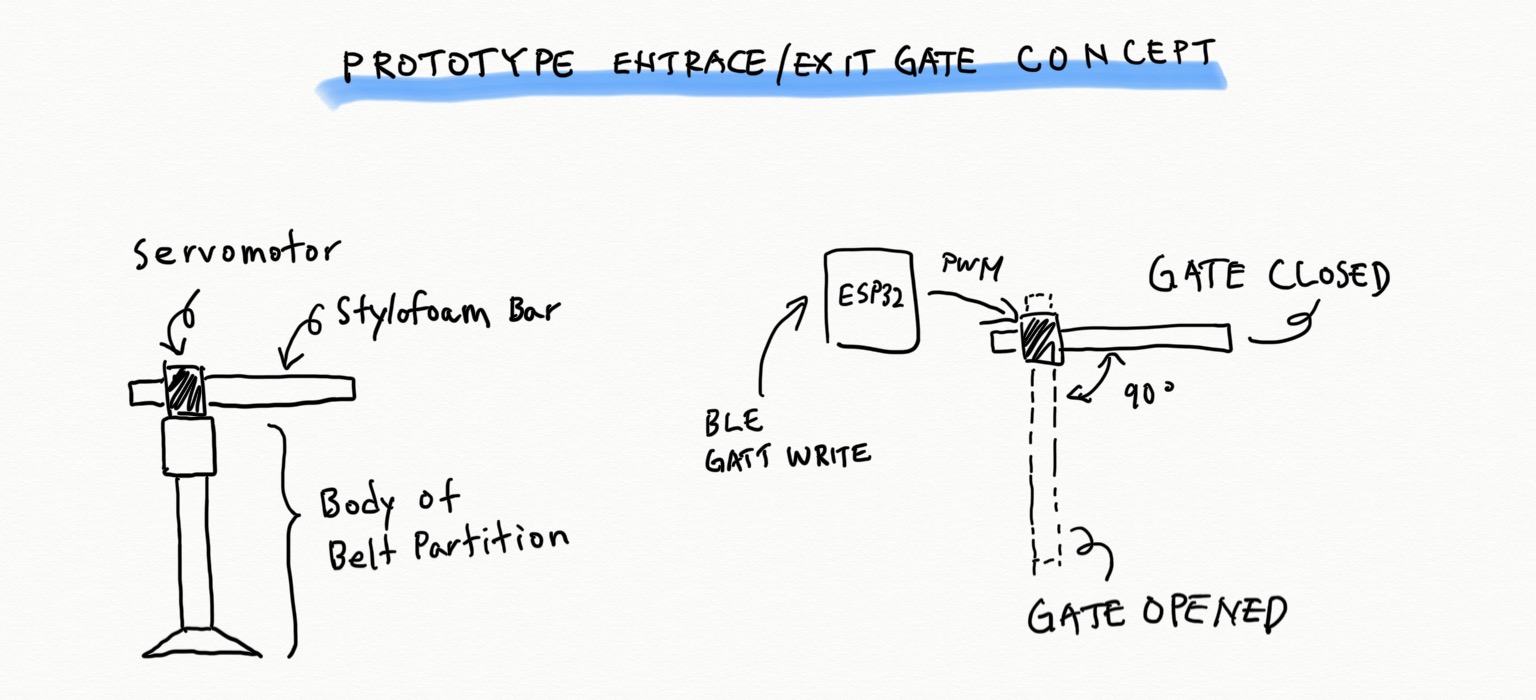 PROTOTYPE ENTRACE/EXIT GATE CONCEPT
Servomotor
Stylofoam Bar
Body of
Belt Partition
ESP32
PWM
GATE CLOSED
90°
BLE
GATT WRITE
GATE OPENED